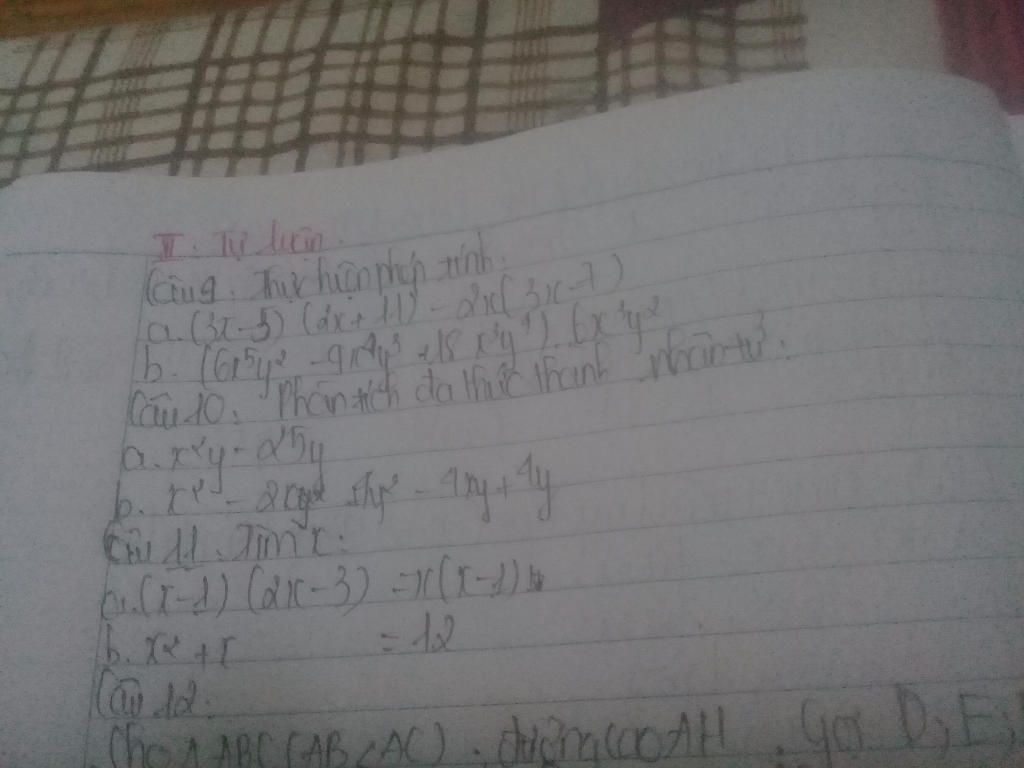 II. Tự luận.
Câu 9. Thực hiện phép tính.
a. (3x-5) (2x+11) - 2x(3x-7)
b. (6x⁵y² - 9x⁴y³ + 18x³y⁴) : 6x³y²
Câu 10: Phân tích đa thức thành nhân tử:
a. x²y - 25y
b. x² - 2xy - 4xy + 4y
Câu 11. Tìm x:
a. (x-1) (2x-3) = x(x-1)
b. x² + x = 12
Câu 12.
Cho Δ ABC (AB < AC), đường cao AH. Gọi D; E;